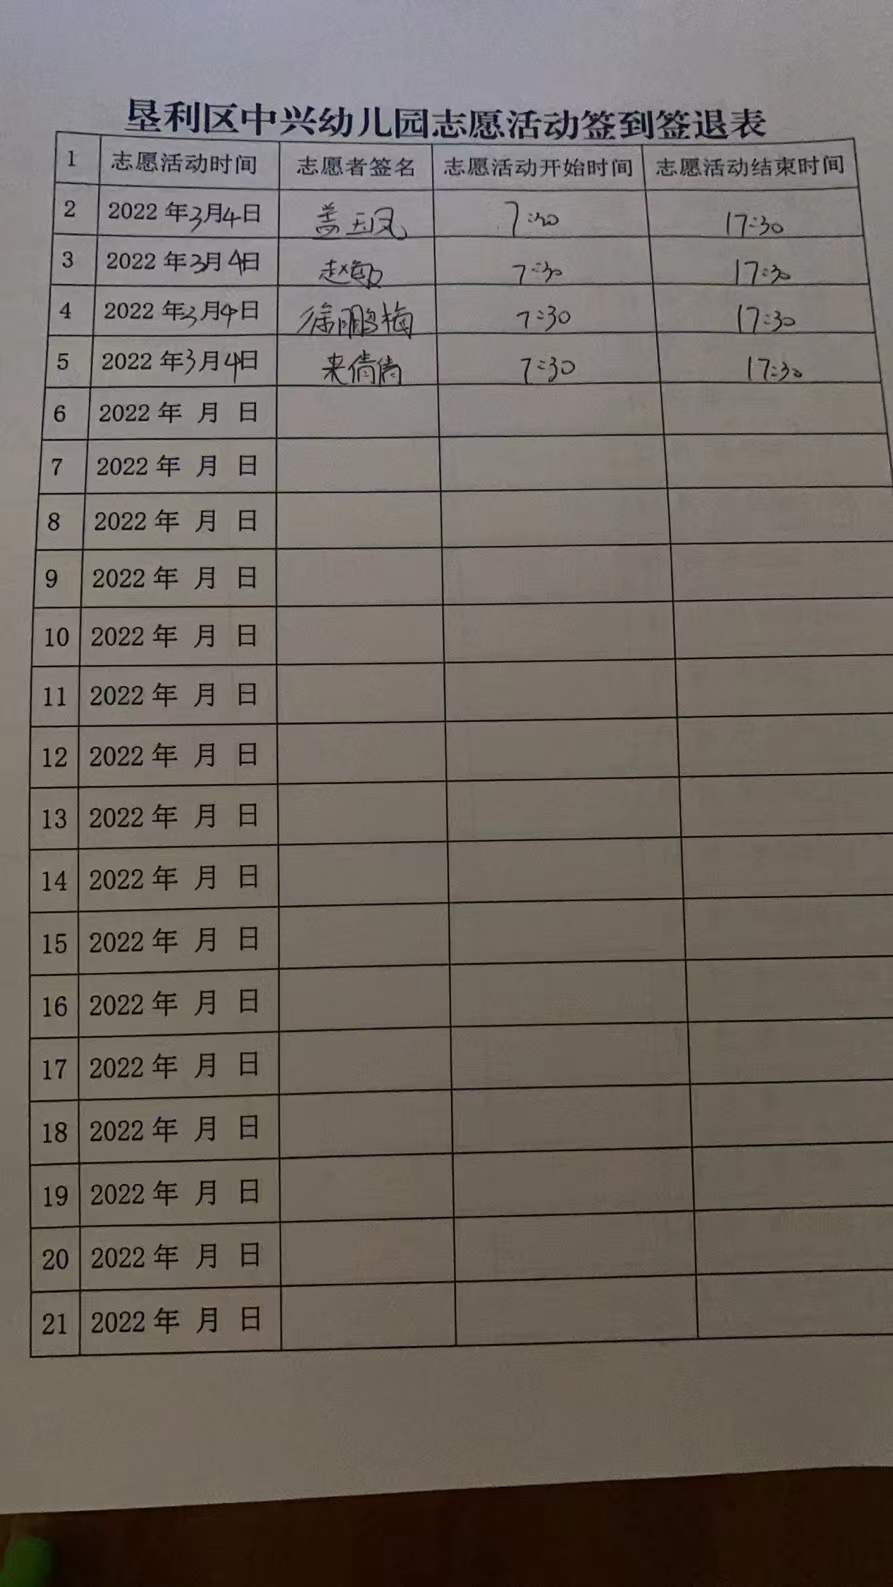 垦利区中兴幼儿园志愿活动签到签退表
1 志愿活动时间 志愿者签名 志愿活动开始时间 志愿活动结束时间
2 2022 年3月4日 盖玉凤 7:30 17:30
3 2022 年3月4日 赵敏 7:30 17:30
4 2022 年3月4日 徐鹏梅 7:30 17:30
5 2022 年3月4日 来倩倩 7:30 17:30
6 2022 年 月 日
7 2022 年 月 日
8 2022 年 月 日
9 2022 年 月 日
10 2022 年 月 日
11 2022 年 月 日
12 2022 年 月 日
13 2022 年 月 日
14 2022 年 月 日
15 2022 年 月 日
16 2022 年 月 日
17 2022 年 月 日
18 2022 年 月 日
19 2022 年 月 日
20 2022 年 月 日
21 2022 年 月 日